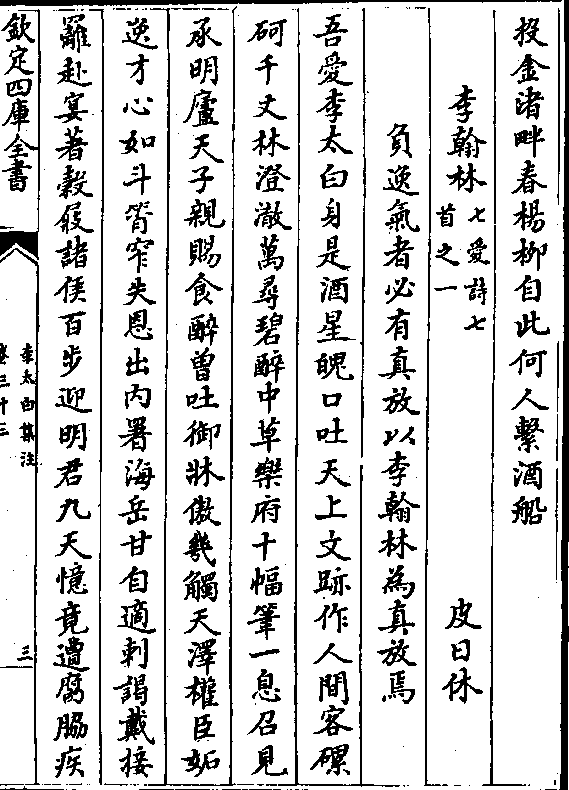 投金渚畔春楊柳自此何人繫酒船
李翰林七愛詩七首之一 皮日休
負逸氣者必有真放以李翰林為真放焉
吾愛李太白身是酒星魄口吐天上文跡作人間客磥
砢千丈林澄澈萬尋碧醉中草樂府十幅筆一息召見
承明廬天子親賜食醉曾吐御牀傲幾觸天澤權臣妬
逸才心如斗筲窄失恩出內署海岳甘自適刺謁戴接
䍦赴宴著穀屐諸侯百步迎明君九天憶竟遭腐脇疾
欽定四庫全書
李太白集注
卷三十三
三